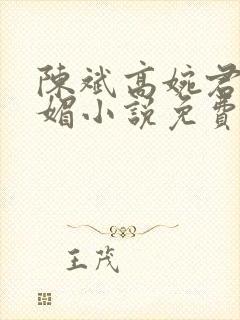 陳斌高婉君
媚小說免費
王茂